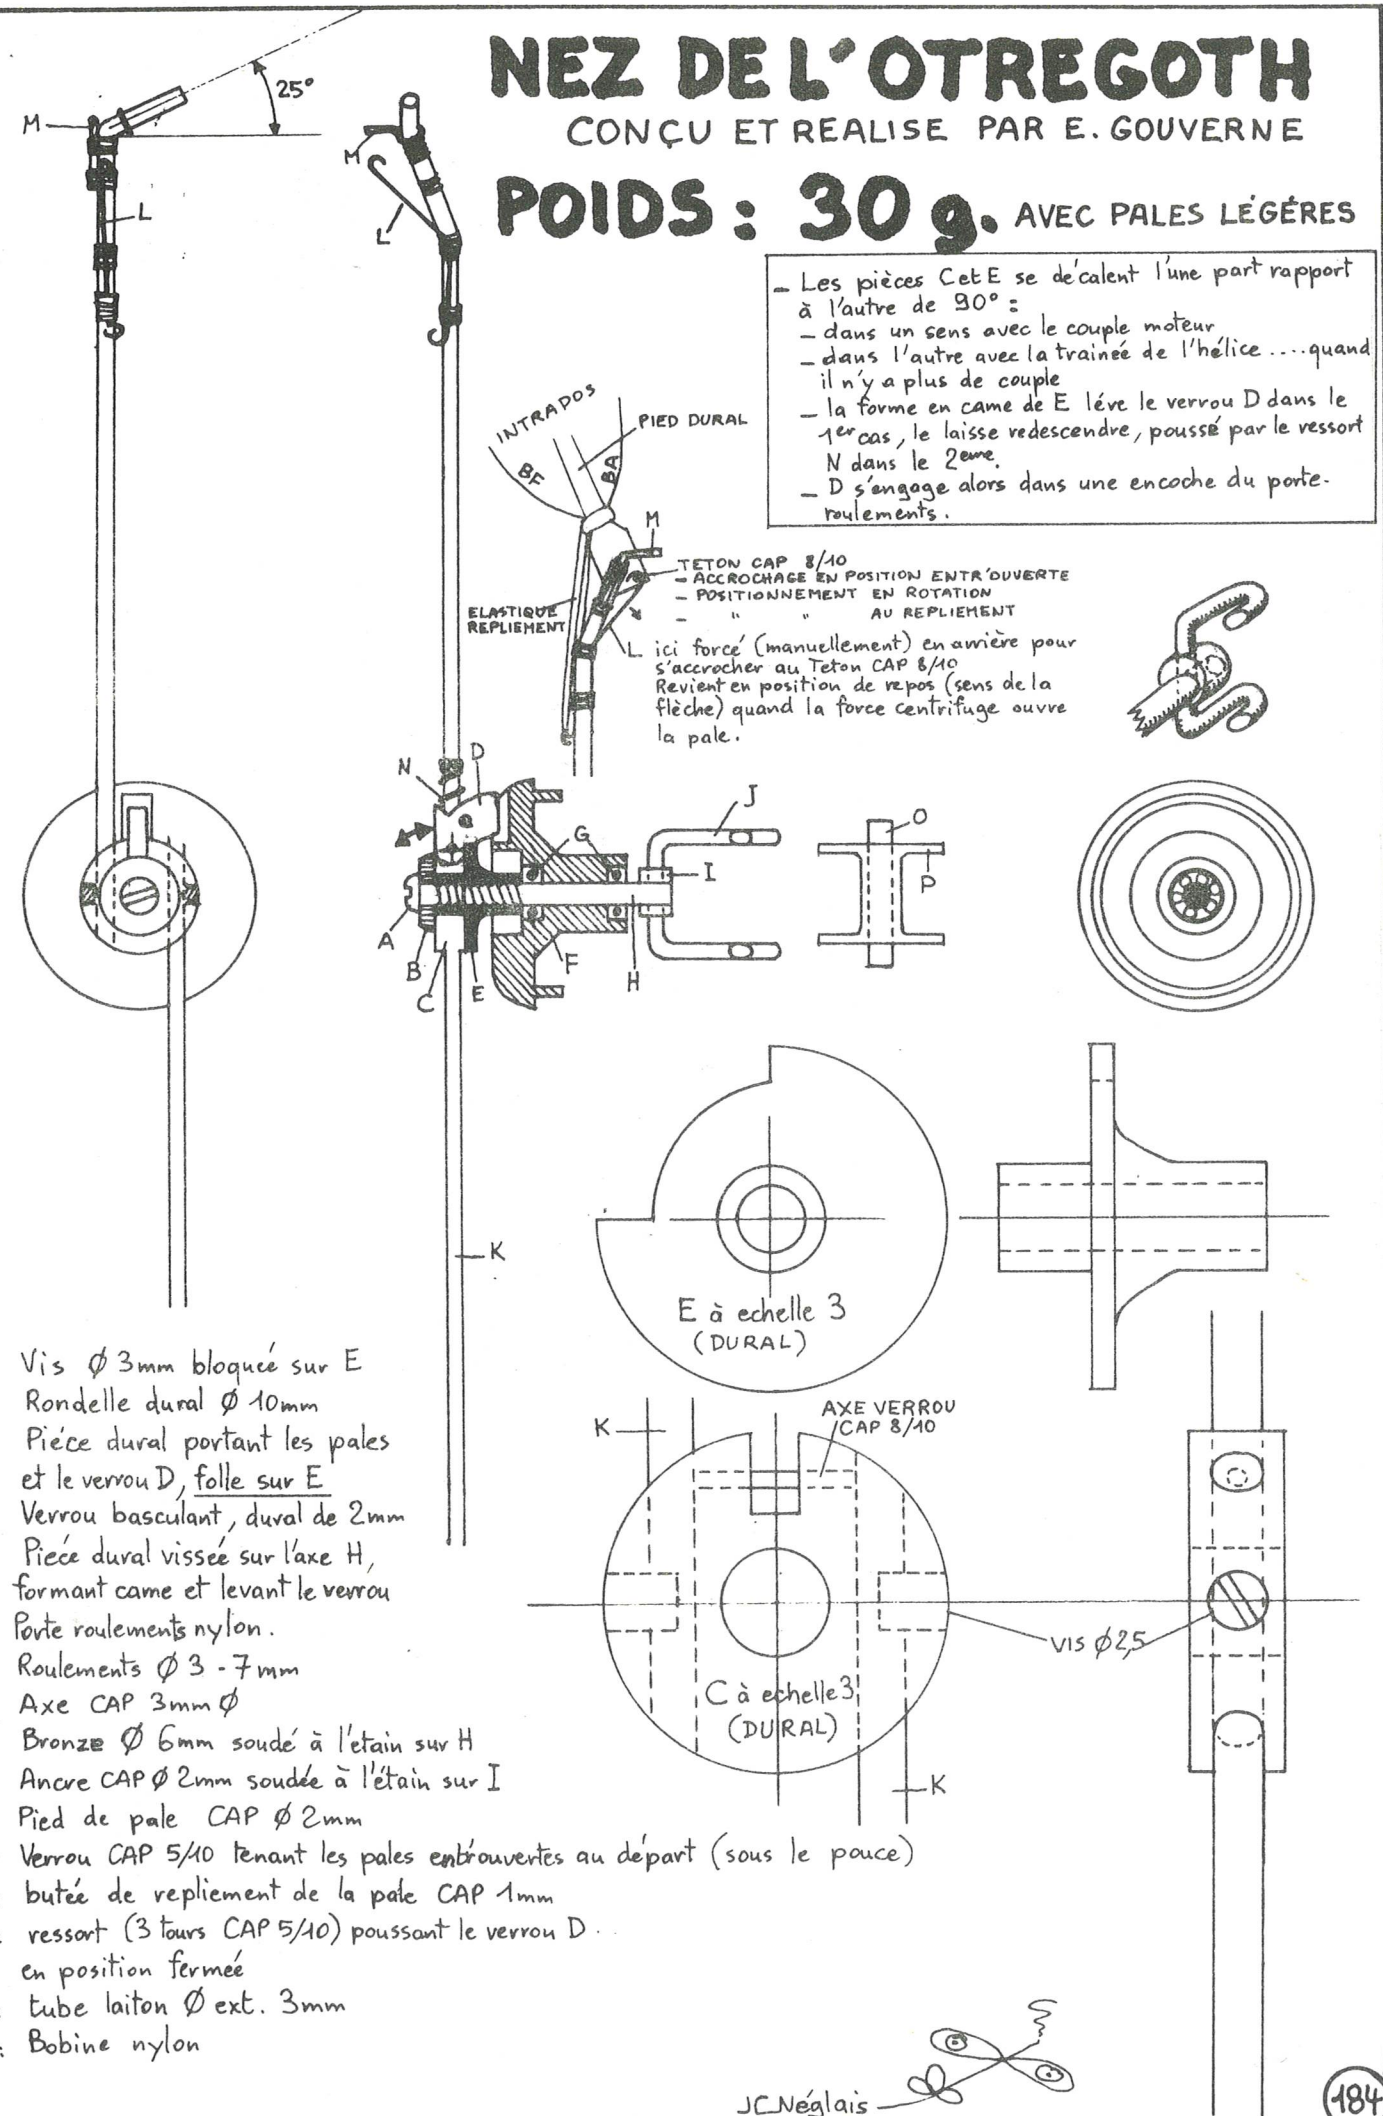 NEZ DE L'OTREGOTH
CONÇU ET REALISE PAR E. GOUVERNE
POIDS : 30 g. AVEC PALES LÉGÉRES
25°
M
L
M
L
– Les pièces C et E se décalent l'une part rapport
à l'autre de 90° :
– dans un sens avec le couple moteur
– dans l'autre avec la trainée de l'hélice ....quand
il n'y a plus de couple
– la forme en came de E léve le verrou D dans le
1er cas, le laisse redescendre, poussé par le ressort
N dans le 2eme.
– D s'engage alors dans une encoche du porte-
roulements.
INTRADOS
PIED DURAL
BF
BA
M
TETON CAP 8/10
– ACCROCHAGE EN POSITION ENTR'OUVERTE
– POSITIONNEMENT EN ROTATION
– " " AU REPLIEMENT
ELASTIQUE
REPLIEMENT
L ici forcé (manuellement) en arrière pour
s'accrocher au Teton CAP 8/10
Revient en position de repos (sens de la
flèche) quand la force centrifuge ouvre
la pale.
N
D
G
J
I
O
P
A
B
C
E
F
H
K
E à echelle 3
(DURAL)
Vis Ø 3mm bloqueé sur E
Rondelle dural Ø 10mm
Piéce dural portant les pales
et le verrou D, folle sur E
Verrou basculant, dural de 2mm
Pieće dural visseé sur l'axe H,
formant came et levant le verrou
Porte roulements nylon.
Roulements Ø 3 - 7mm
Axe CAP 3mm Ø
Bronze Ø 6mm soudé à l'etain sur H
Ancre CAP Ø 2mm soudée à l'étain sur I
Pied de pale CAP Ø 2mm
Verrou CAP 5/10 tenant les pales entrouvertes au départ (sous le pouce)
butée de repliement de la pale CAP 1mm
ressort (3 tours CAP 5/10) poussant le verrou D.
en position fermée
tube laiton Ø ext. 3mm
: Bobine nylon
K
AXE VERROU
CAP 8/10
VIS Ø 2,5
C à echelle 3
(DURAL)
K
JC Néglais
184